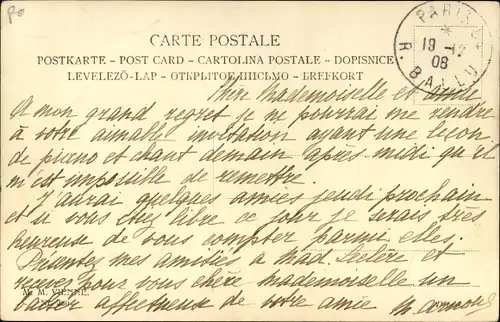 Po
CARTE POSTALE
POSTKARTE - POST CARD - CARTOLINA POSTALE - DOPISNICE
LEVELEZŐ-LAP - ОТКРЫТОЕ ПИСЬМО - BREFKORT
PARIS
*
19 -12
06
R. BALLU
Chère Mademoiselle et amie
A mon grand regret je ne pourrai me rendre
à votre aimable invitation ayant une leçon
de piano et chant demain après-midi qu'il
m'est impossible de remettre.
J'aurai quelques amies jeudi prochain
et si vous êtes libre ce jour je serais très
heureuse de vous compter parmi elles.
Présentez mes amitiés à Mad. Leclère et
recevez pour vous chère mademoiselle un
baiser affectueux de votre amie
M. M. VIENNE